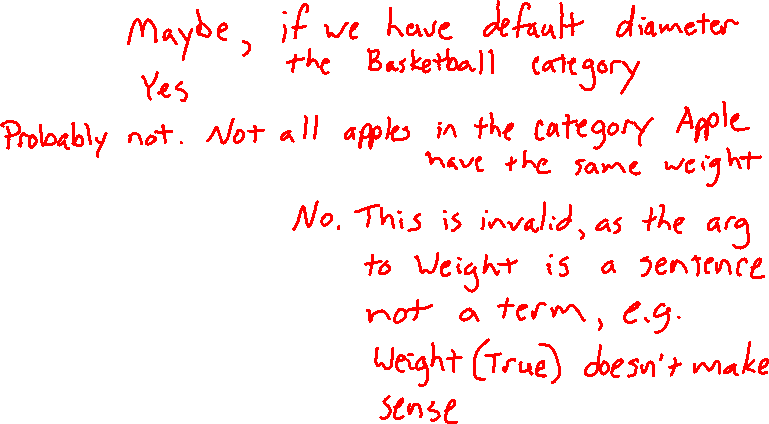 Maybe, if we have default diameter
the Basketball category
Yes
Probably not. Not all apples in the category Apple
have the same weight
No. This is invalid, as the arg
to Weight is a sentence
not a term, e.g.
Weight(True) doesn't make
sense